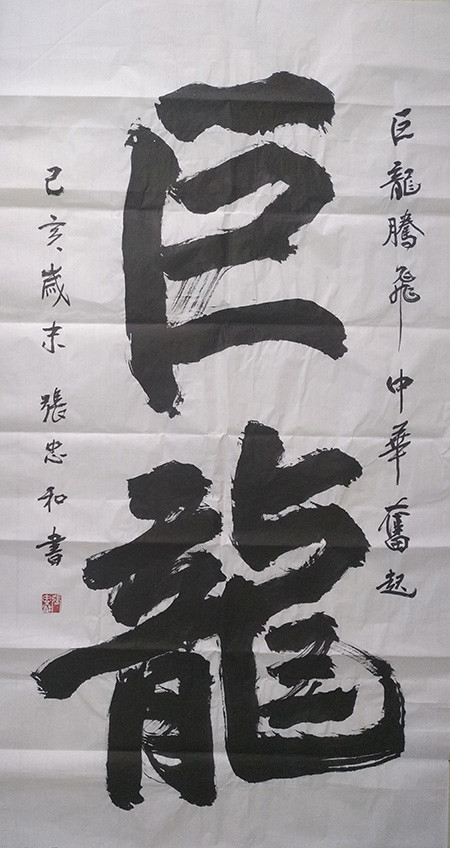 巨龍騰飛中華奮起
巨龍
己亥歲末 張忠和書